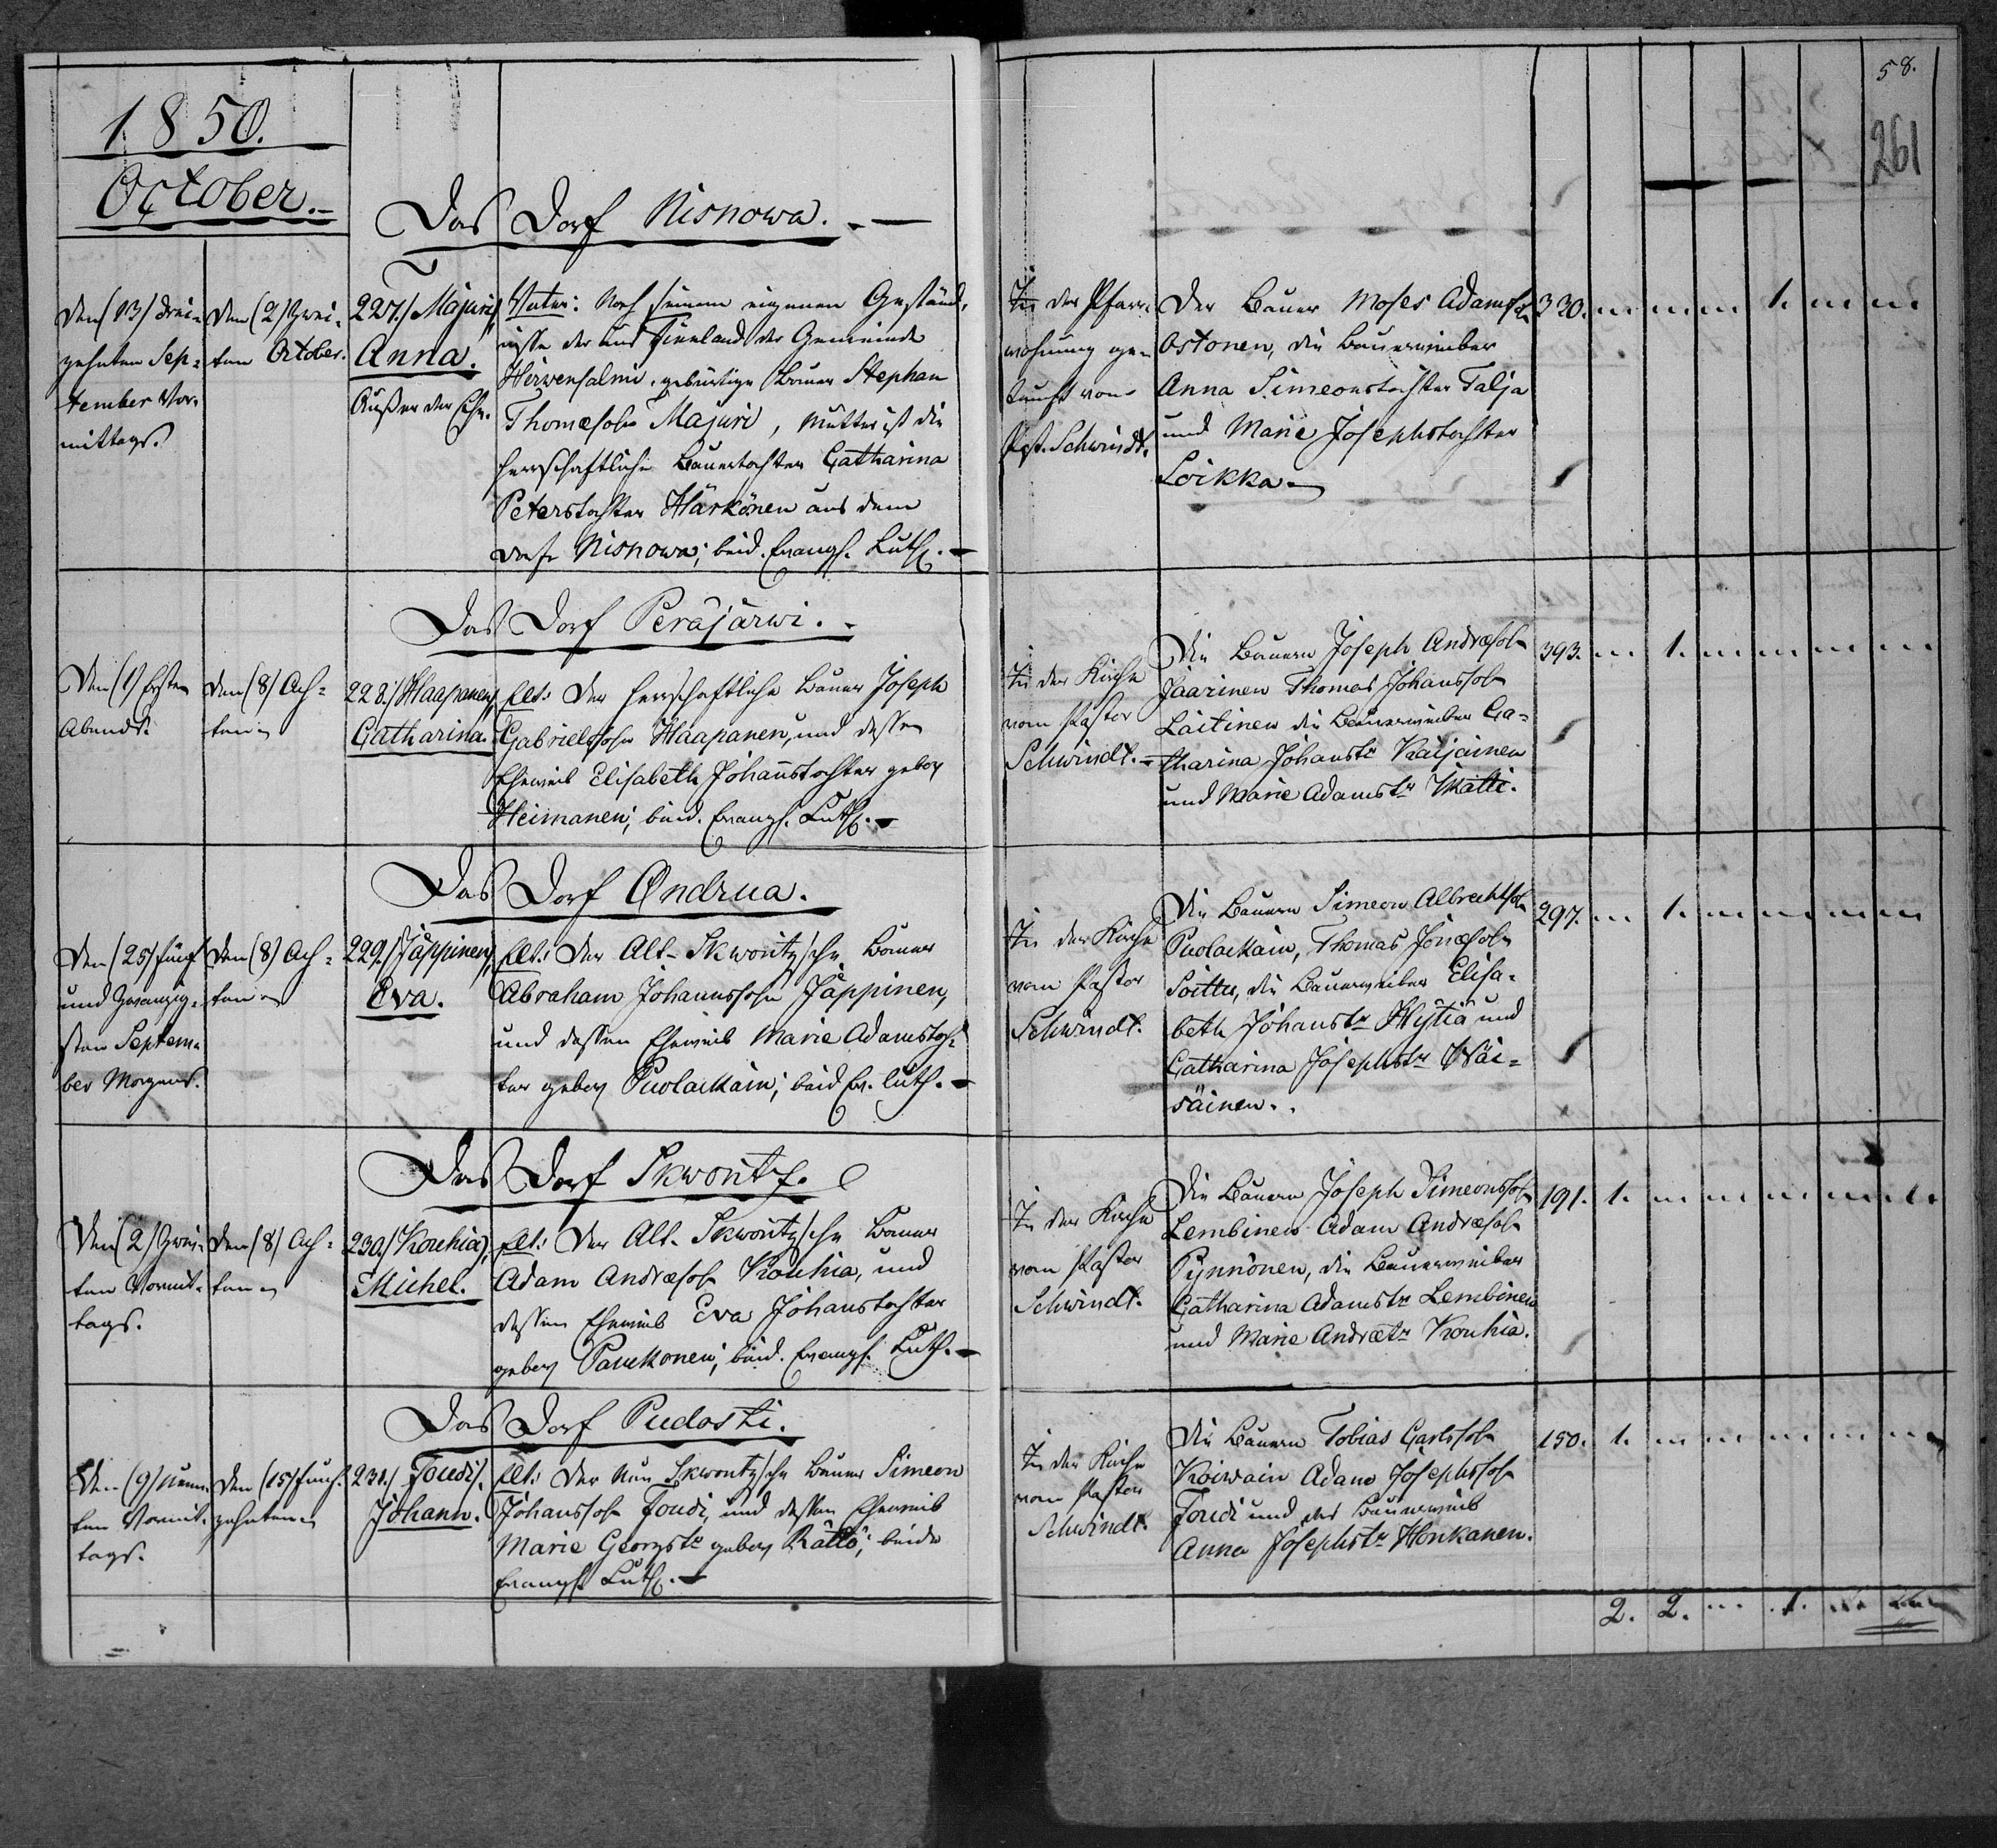 1850.
October.
Das Dorf Nisnowa.
Den (13) drei-
zehnten Sep-
tember Vor-
mittags.
Den (2) Zwei-
ten October.
227.) Majuri,
Anna.
Außer der Ehe.
Vater: Nach seinem eigenen Geständ-
nisse der aus Finnland der Gemeinde
Hirwensalmi gebürtige Bauer Stephan
Thomæsohn Majuri, Mutter ist die
herrschaftliche Bauertochter Catharina
Peterstochter Härkönen aus dem
Dorfe Nisnowa; beid. Evangl. Luth.
In der Pfarr-
wohnung ge-
tauft von
Past. Schwindt.
Der Bauer Moses Adamss.
Ostonen, die Bauerweiber
Anna Simeonstochter Talja
und Marie Josephstochter
Loikka.
330.
1.
58.
261
Das Dorf Peräjärwi.
Den (1) Ersten
Abends.
Den (8) Ach-
ten
228.) Haapanen,
Catharina.
Elt: Der herrschaftliche Bauer Joseph
Gabrielssohn Haapanen, und dessen
Eheweib Elisabeth Johannstochter gebor
Heimanen; beid. Evangl. Luth.
In der Kirche
vom Pastor
Schwindt.
Die Bauern Joseph Andræsohn
Jaarinen Thomas Johanssohn
Laitinen die Bauerweiber Ca-
tharina Johanstr Kaijainen
und Marie Adamstr Matti.
393.
1.
Das Dorf Ondrua.
Den (25) fünf
und Zwanzig-
sten Septem-
ber Morgens.
Den (8) Ach-
ten
229.) Jäppinen,
Eva.
Elt: Der Alt-Skworitzsche Bauer
Abraham Johannssohn Jäppinen,
und dessen Eheweib Marie Adamstoch-
ter gebor Puolackain; beid Ev. Luth.
In der Kirche
vom Pastor
Schwindt.
Die Bauern Simeon Albrechtsoh
Puolackain, Thomas Jonæsohn
Soittu, die Bauerweiber Elisa-
beth Johanstr Hÿtiä und
Catharina Josephstr Wäi-
säinen.
297.
1.
Das Dorf Skworitz.
Den (2) Zwei-
ten Vormit-
tags.
Den (8) Ach-
ten
230.) Kouhia,
Michel.
Elt: Der Alt-Skworitzsche Bauer
Adam Andræsoh Kouhia, und
dessen Eheweib Eva Johanstochter
gebor Paukonen; beid. Evangl. Luth.
In der Kirche
vom Pastor
Schwindt.
Die Bauern Joseph Simeonssoh
Lembinen Adam Andræsoh
Pÿnnönen, die Bauerweiber
Catharina Adamstr Lembinen
und Marie Andrætr Kouhia.
191.
1.
Das Dorf Pudosti.
Den (9) neun-
ten Vormit-
tags.
Den (15) fünf-
zehnten
231.) Toudi,
Johann.
Elt: Der Neu Skworitzsche Bauer Simeon
Johanssoh Toudi, und dessen Eheweib
Marie Georgstr gebor Rättö; beide
Evangl. Luth.
In der Kirche
vom Pastor
Schwindt.
Die Bauern Tobias Carlssoh
Koiwain Adam Josephssoh
Toudi und das Bauerweib
Anna Josephstr Honkanen.
150.
1.
2. 2. 1.